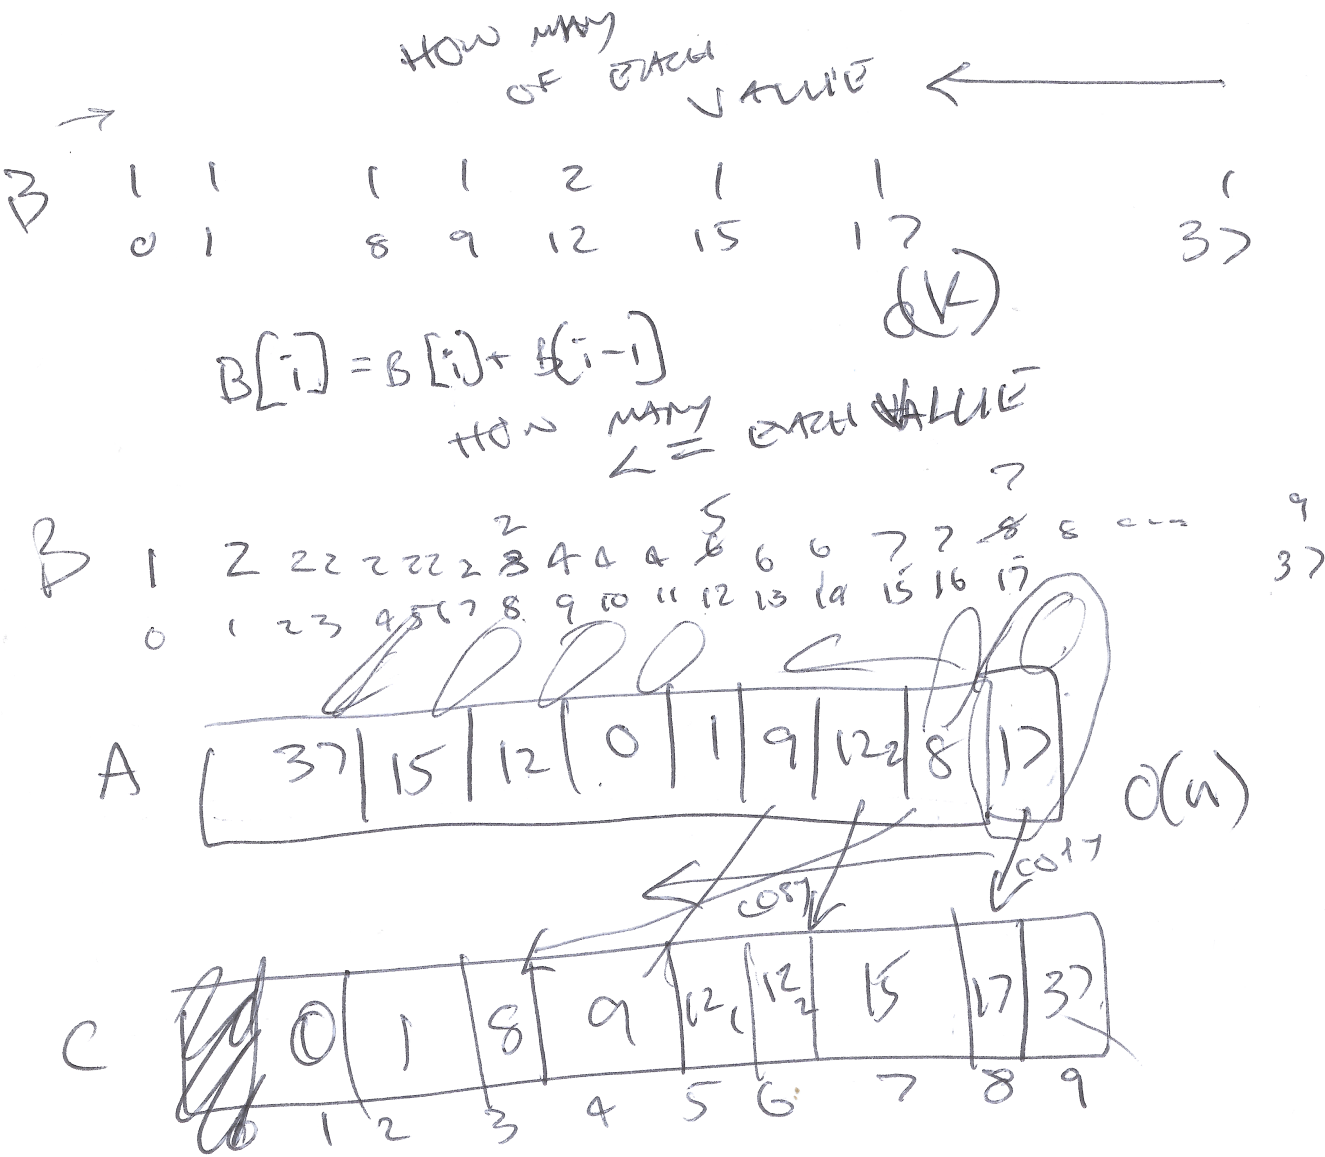 HOW MANY
OF EACH
VALUE ←
→
B 1 1 1 1 2 1 1 1
0 1 8 9 12 15 17 37
O(K)
B[i] = B[i] + B[i-1]
HOW MANY EACH VALUE
<=
2 5 7 9
B 1 2 2 2 2 2 2 2 3 4 4 4 6 6 6 7 7 8 8 ---- 37
0 1 2 3 4 5 6 7 8 9 10 11 12 13 14 15 16 17
A 37 15 12 0 1 9 12₂ 8 17 O(n)
C 0 1 8 9 12₁ 12₂ 15 17 37
0 1 2 3 4 5 6 7 8 9